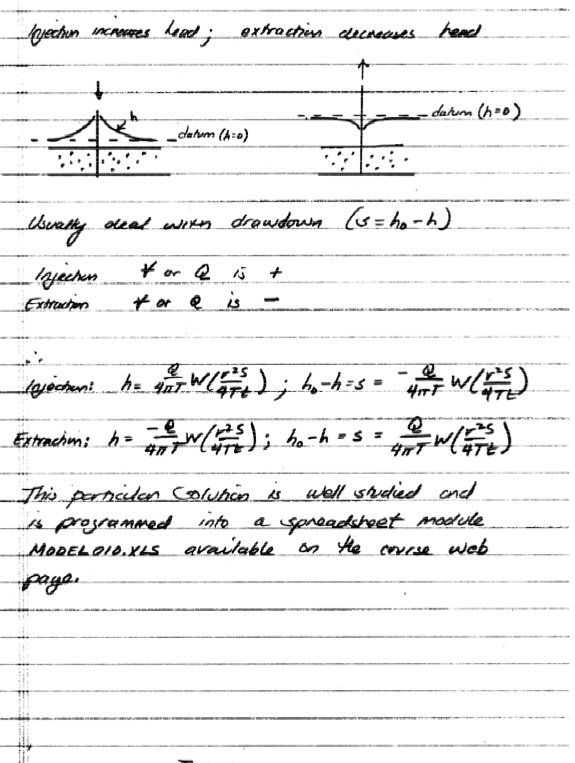 Injection increases head; extraction decreases head
h
datum (h=0)
datum (h=0)
Usually deal with drawdown (s = h₀ - h)
Injection V̶ or Q is +
Extraction V̶ or Q is -
∴
Injection: h = Q/4πT W(r²S/4Tt); h₀-h = s = -Q/4πT W(r²S/4Tt)
Extraction: h = -Q/4πT W(r²S/4Tt); h₀-h = s = Q/4πT W(r²S/4Tt)
This particular solution is well studied and
is programmed into a spreadsheet module
MODEL010.XLS available on the course web
page.